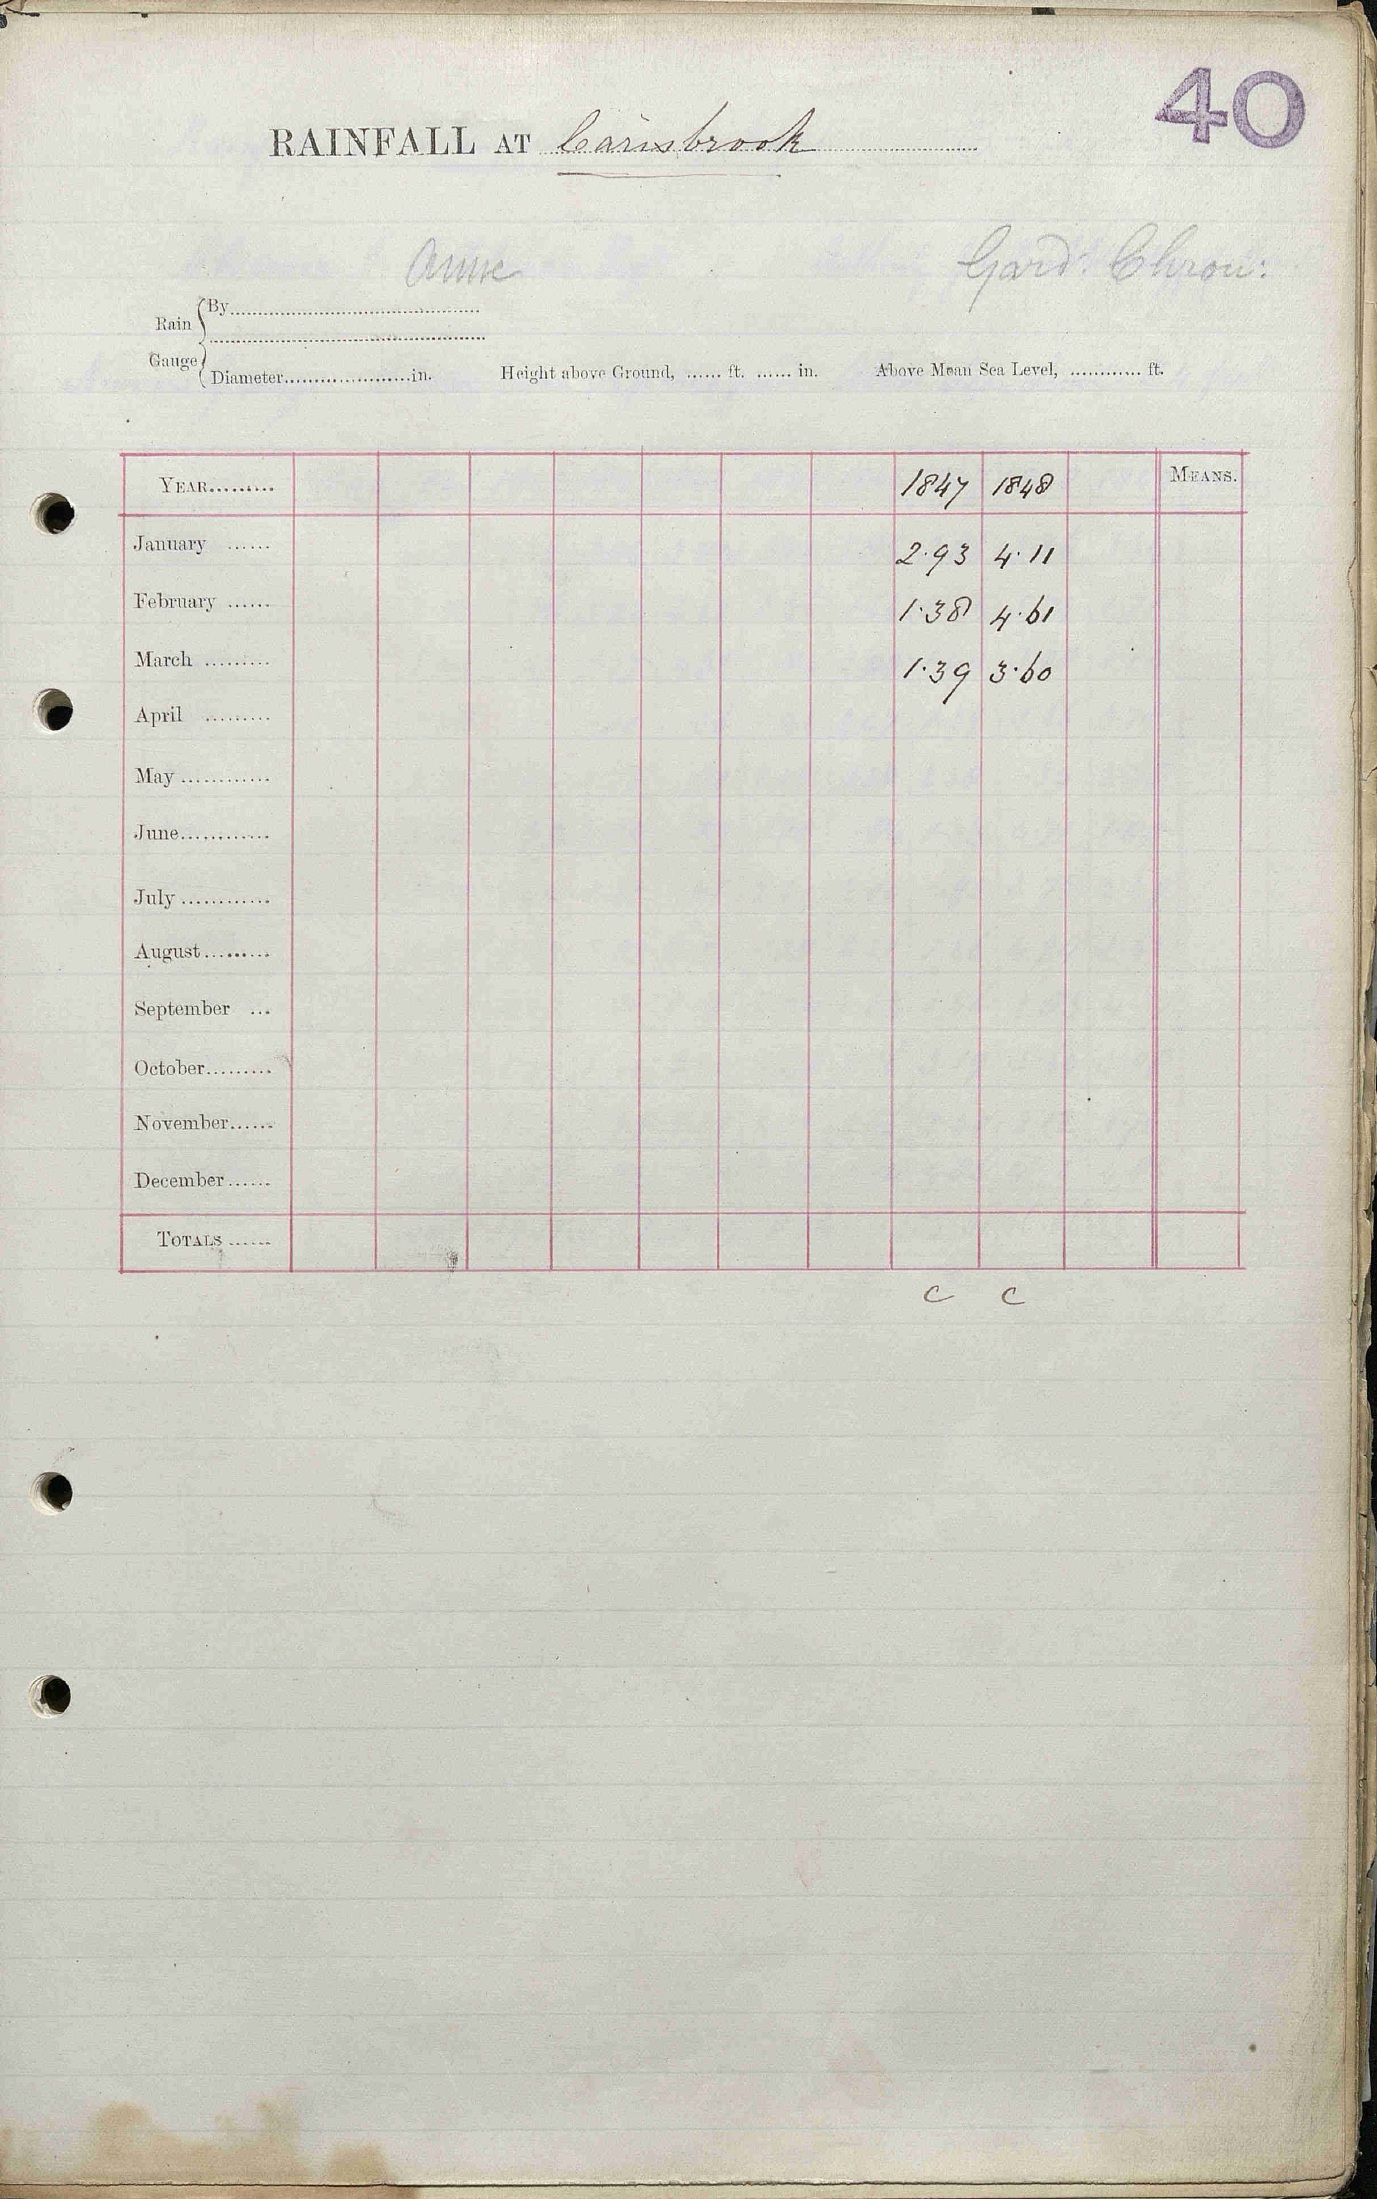 40
RAINFALL AT Carisbrook
Gard: Chron:
Rain Gauge { By........................
Diameter......................in. Height above Ground, ...... ft. ...... in. Above Mean Sea Level, ............ ft.
YEAR......... 1847 1848 MEANS.
January ...... 2.93 4.11
February ...... 1.38 4.61
March ......... 1.39 3.60
April .........
May............
June............
July............
August.........
September ...
October.........
November......
December......
TOTALS ......
c c